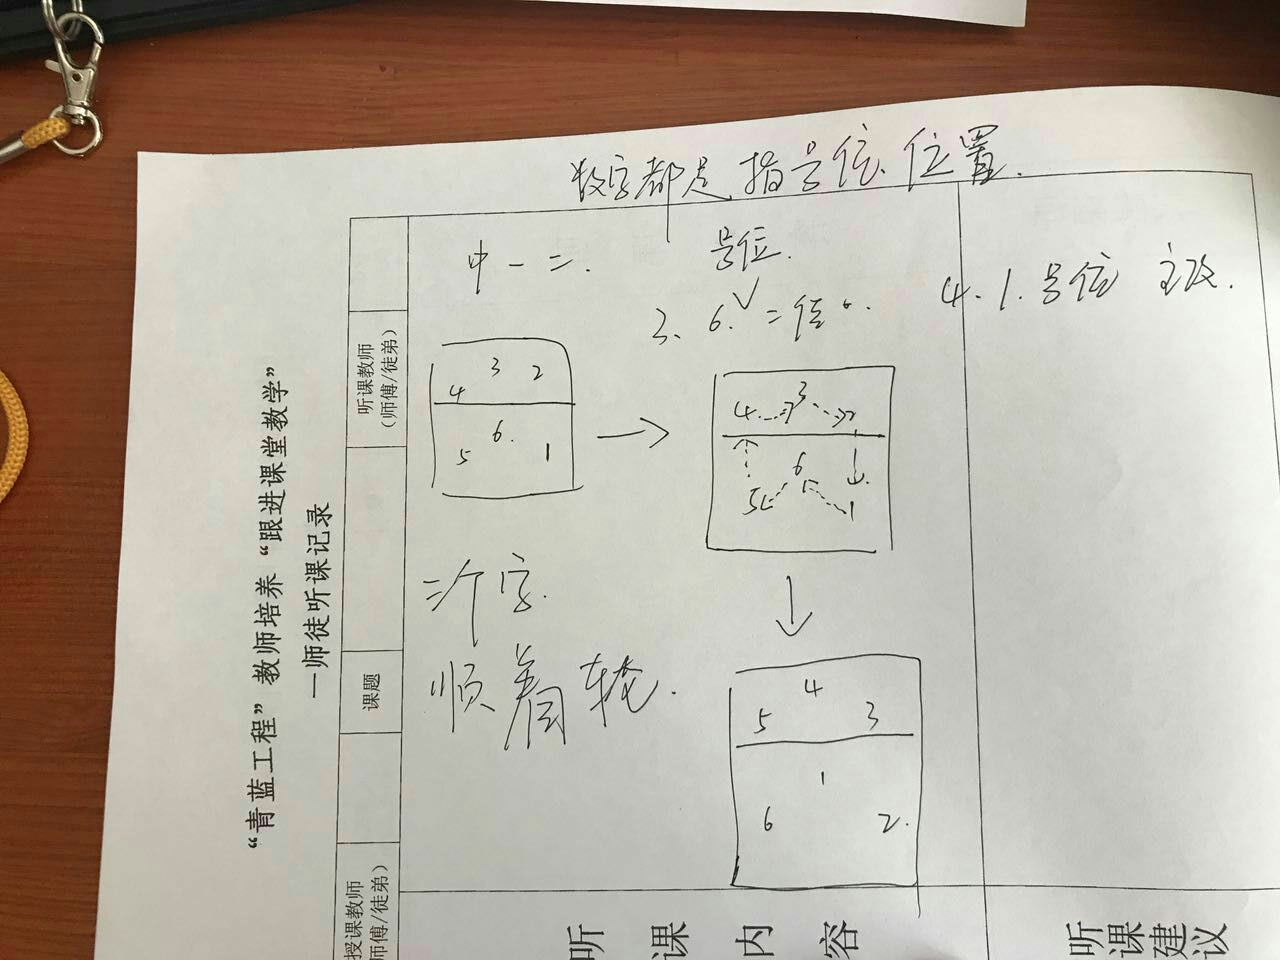 数字都是指号位、位置.
中一二.
号位.
3. 6. 二传
4. 1. 号位 主攻.
3 2
4
6.
5 1
4 3 2
6
5 1
二个字.
顺着转.
4
5 3
1
6 2.
“青蓝工程”教师培养“跟进课堂教学”
—师徒听课记录
授课教师
(师傅/徒弟)
课题
听课教师
(师傅/徒弟)
听课内容
听课建议